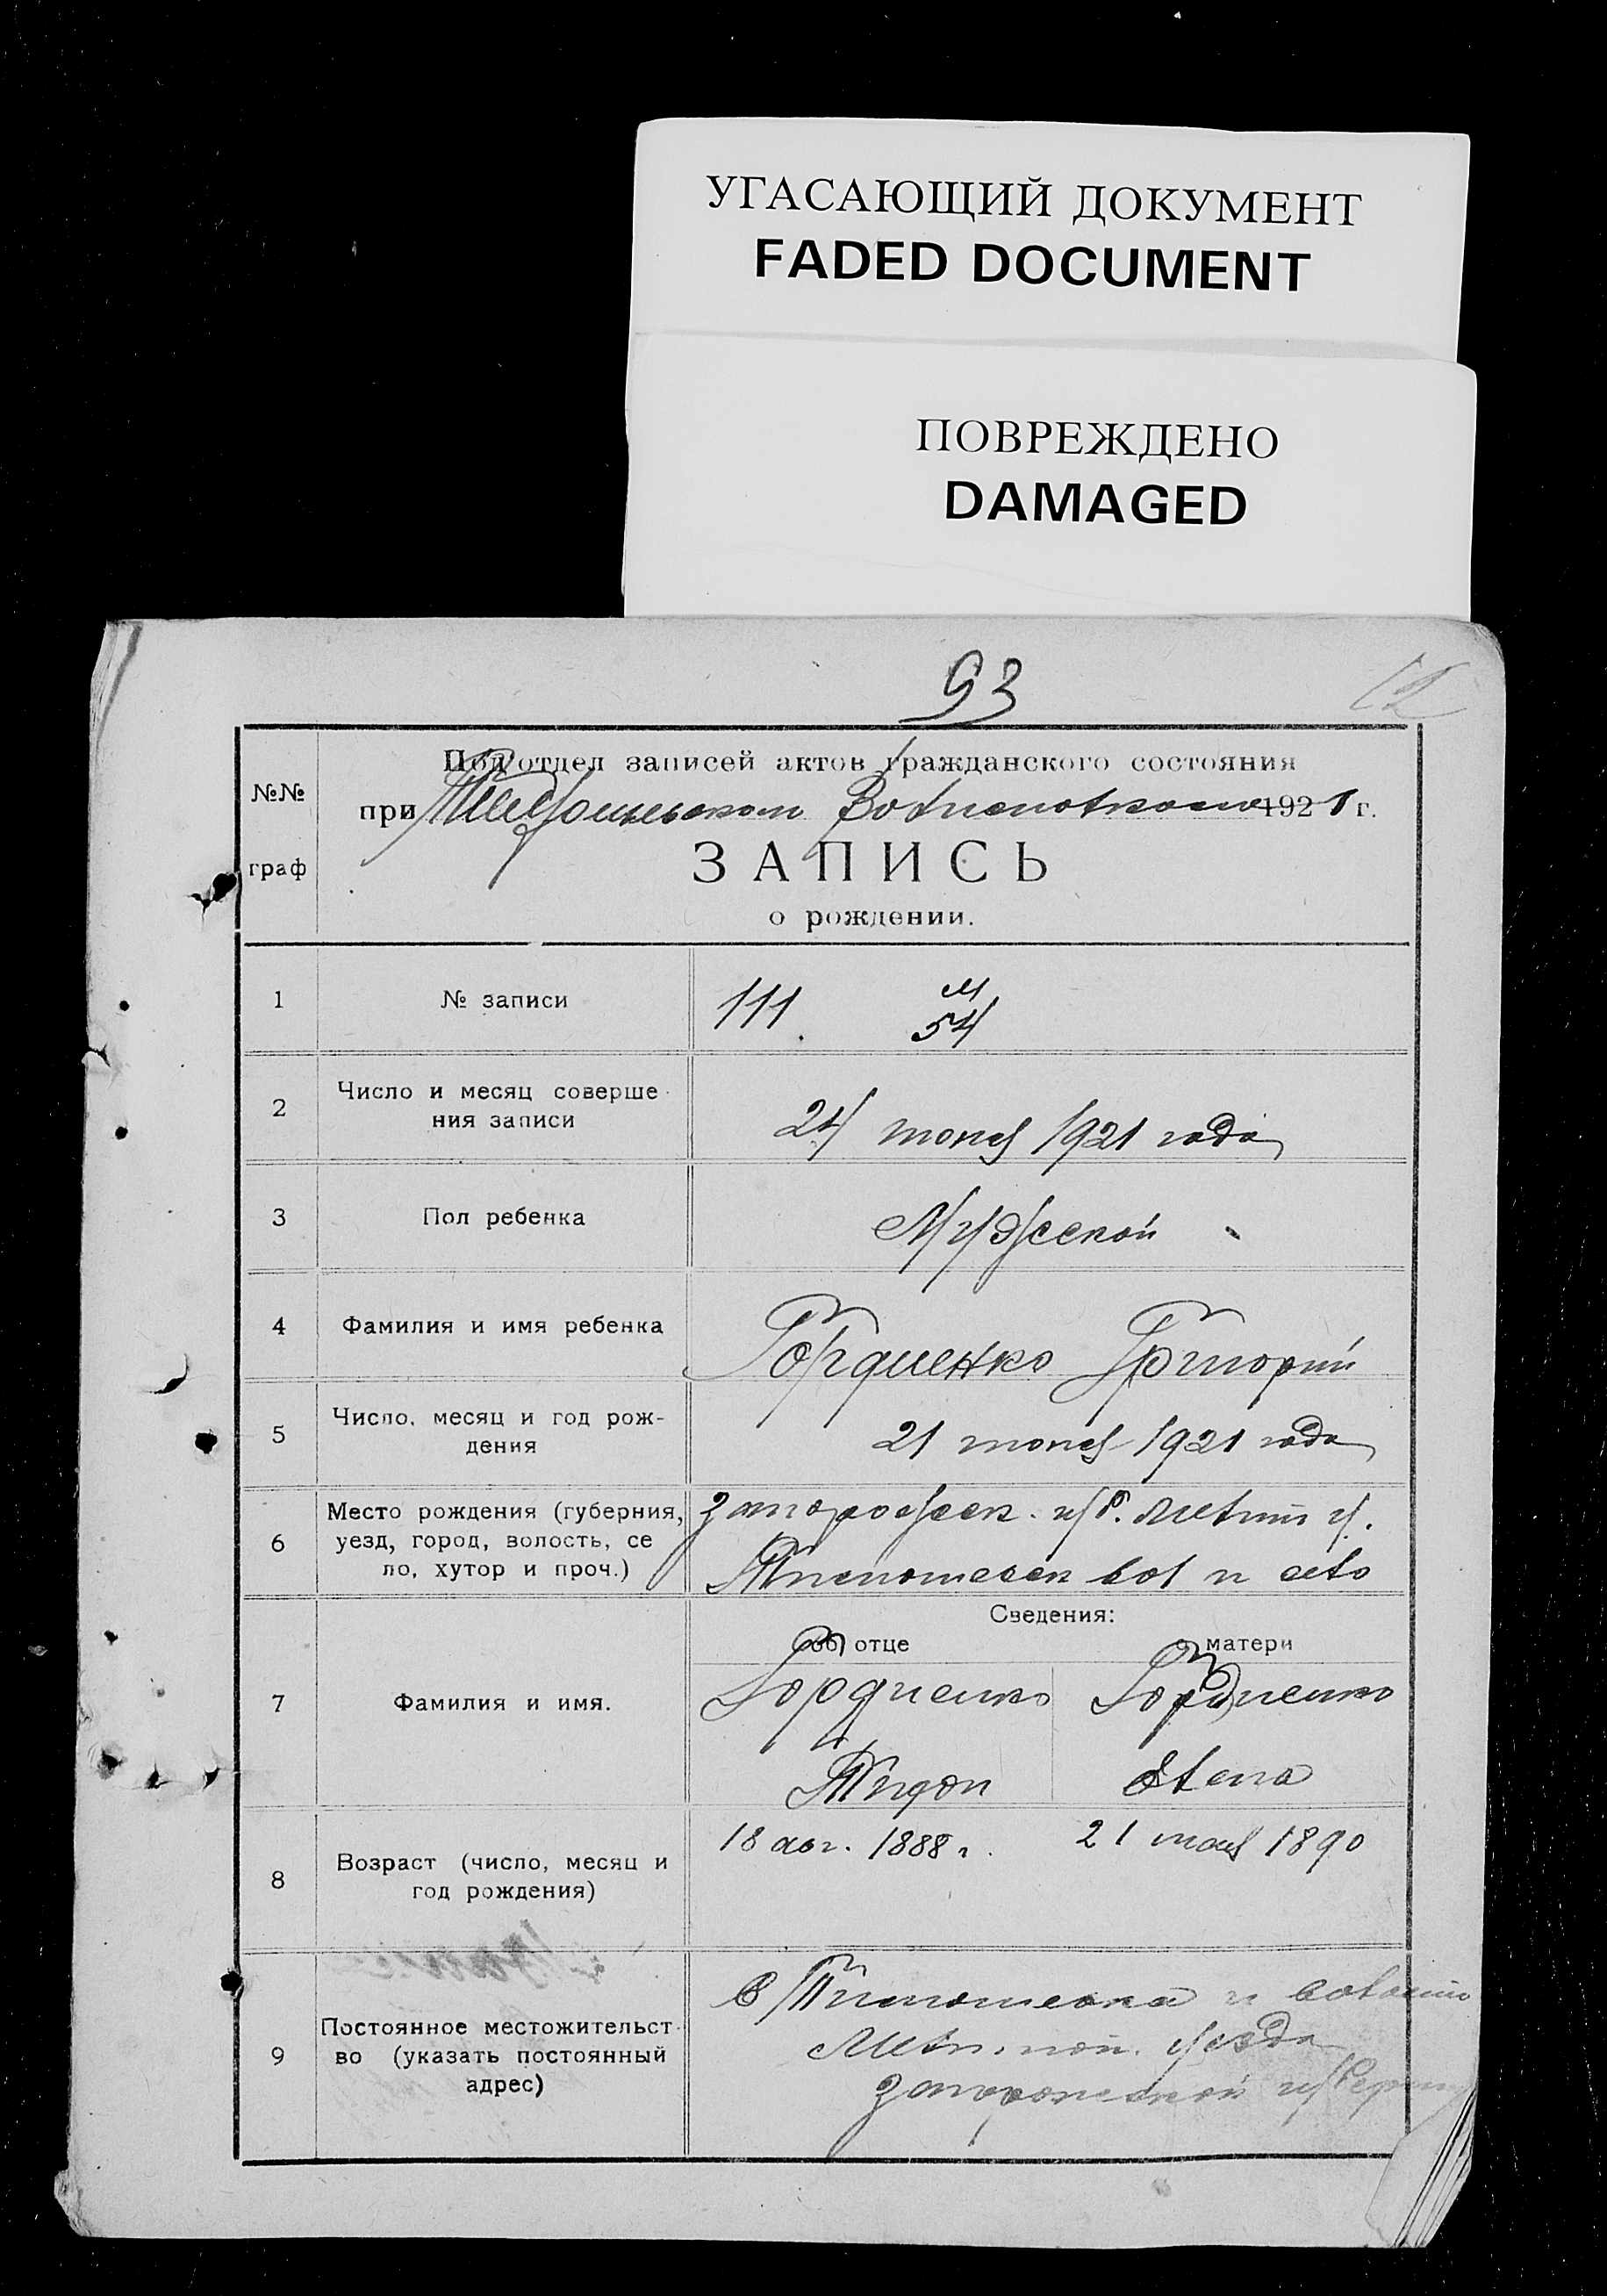 УГАСАЮЩИЙ ДОКУМЕНТ
FADED DOCUMENT
ПОВРЕЖДЕНО
DAMAGED
93
12
№№
граф
Под'отдел записей актов гражданского состояния
при Волисполкоме 1921 г.
ЗАПИСЬ
о рождении.
1
№ записи
111
м
54
2
Число и месяц соверше-
ния записи
24 июня 1921 года
3
Пол ребенка
Мужской
4
Фамилия и имя ребенка
Гордиенко Григорий
5
Число, месяц и год рож-
дения
21 июня 1921 года
6
Место рождения (губерния,
уезд, город, волость, се
ло, хутор и проч.)
Запорожск. губ. Мелит у.
Тимошевск вол и село
Сведения:
об отце
о матери
7
Фамилия и имя.
Гордиенко
Гордиенко
Елена
8
Возраст (число, месяц и
год рождения)
18 авг. 1888 г.
21 1890
9
Постоянное местожительст-
во (указать постоянный
адрес)
в и волости
уезда
Запорожской губернии